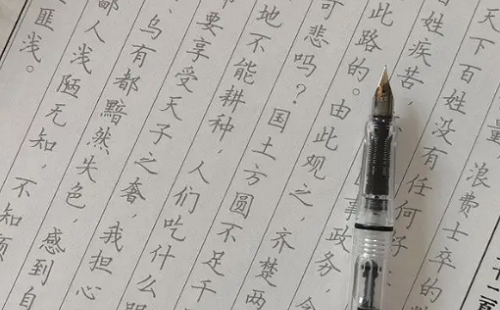 量 浪费士卒的
天下百姓没有任何好
姓疾苦, 事政务,
此路的。由此观之 齐楚两
可悲吗?国土方圆不足千
地不能耕种,人们吃什么
要享受天子之奢,我担心
乌有都黯然失色,感到自
鄙人浅陋无知,不知
匪浅。